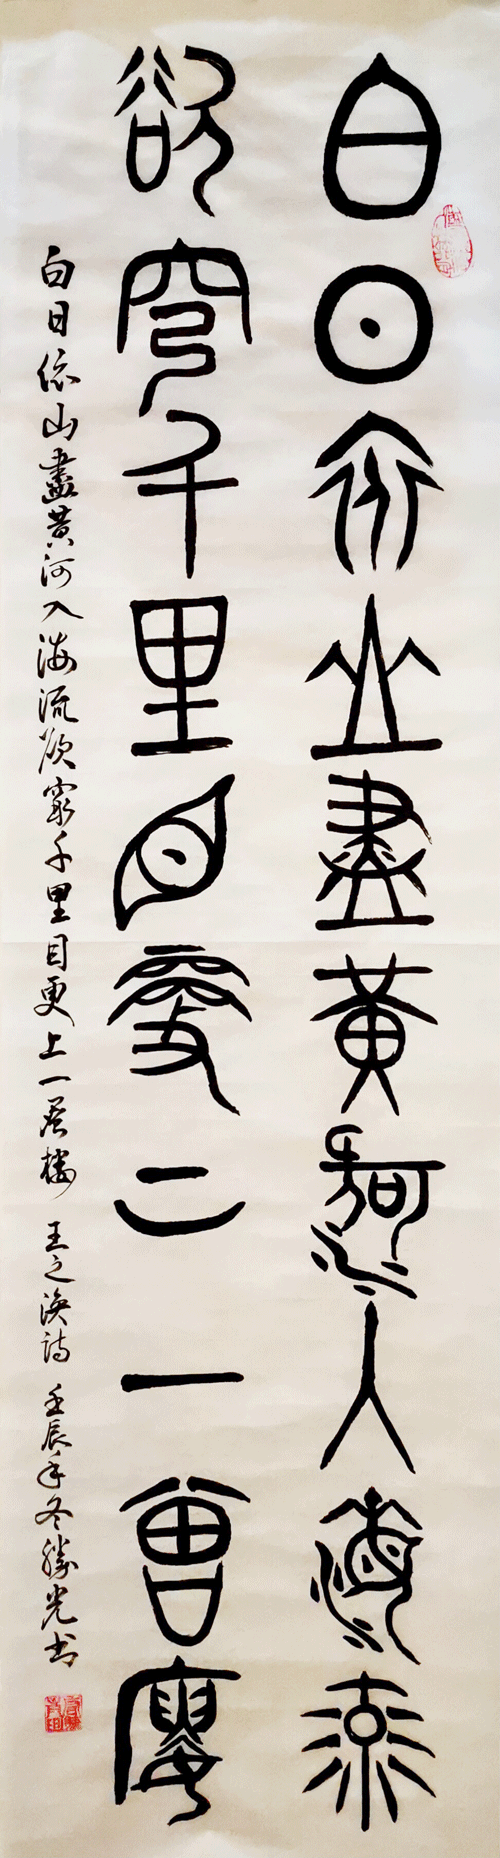 白日依山盡黃河入海流
欲窮千里目更上一曾廔
白日依山盡黃河入海流欲窮千里目更上一層樓 王之渙詩 壬辰年冬勝光书